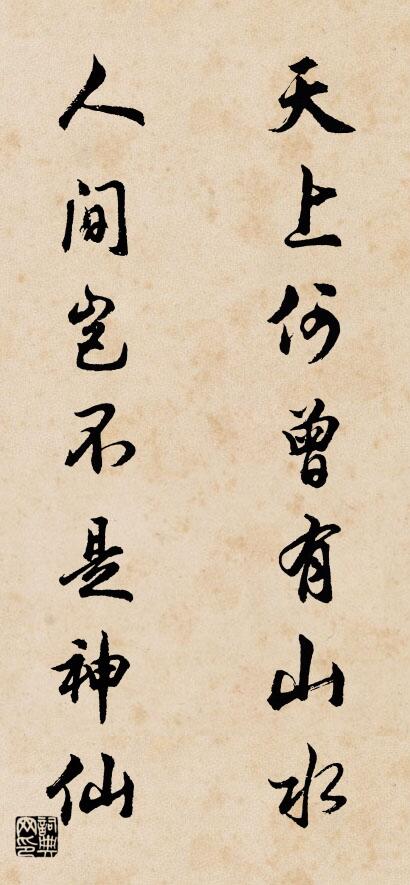 天上何曾有山水
人间岂不是神仙
詞典网印